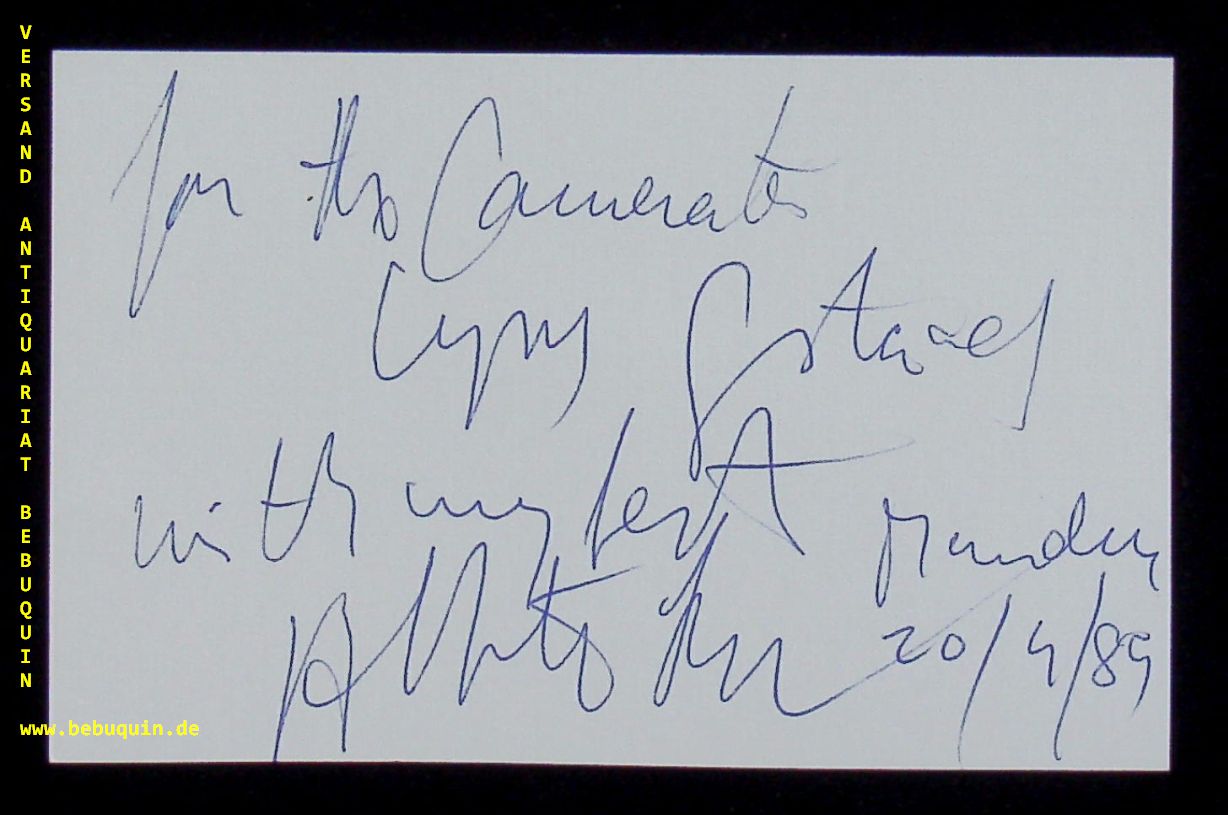 VERSAND ANTIQUARIAT BEBUQUIN
www.bebuquin.de
for the Camerata
Lysy Gstaad
with my best
Alberto
20/4/89